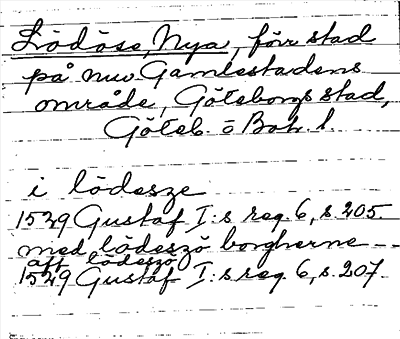 Lödöse, Nya, förr stad
på nuv. Gamlestadens
område, Göteborgs stad,
Göteb. o Boh. l.
i lödesze
1529 Gustaf I:s reg. 6, s. 205.
med lödeszö borgherne --
aff lödeszö
1529 Gustaf I:s reg. 6, s. 207.